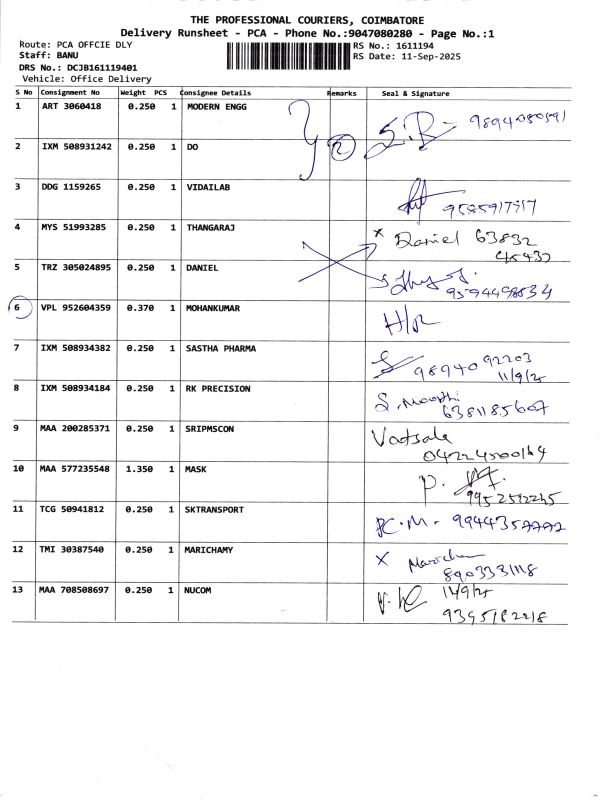 THE PROFESSIONAL COURIERS, COIMBATORE
Delivery Runsheet - PCA - Phone No.:9047080280 - Page No.:1
Route: PCA OFFCIE DLY
RS No.: 1611194
Staff: BANU
RS Date: 11-Sep-2025
DRS No.: DCJB161119401
Vehicle: Office Delivery
S No Consignment No Weight PCS Consignee Details Remarks Seal & Signature
1 ART 3060418 0.250 1 MODERN ENGG
2 IXM 508931242 0.250 1 DO 2
3 DDG 1159265 0.250 1 VIDAILAB
4 MYS 51993285 0.250 1 THANGARAJ x Daniel 63832
45437
5 TRZ 305024895 0.250 1 DANIEL
6 VPL 952604359 0.370 1 MOHANKUMAR H/R
7 IXM 508934382 0.250 1 SASTHA PHARMA 9894092203
8 IXM 508934184 0.250 1 RK PRECISION S. Moorthi
6381185607
9 MAA 200285371 0.250 1 SRIPMSCON Vatsala
04224500164
10 MAA 577235548 1.350 1 MASK P.
11 TCG 50941812 0.250 1 SKTRANSPORT
12 TMI 30387540 0.250 1 MARICHAMY x
8903331118
13 MAA 708508697 0.250 1 NUCOM
9395182218